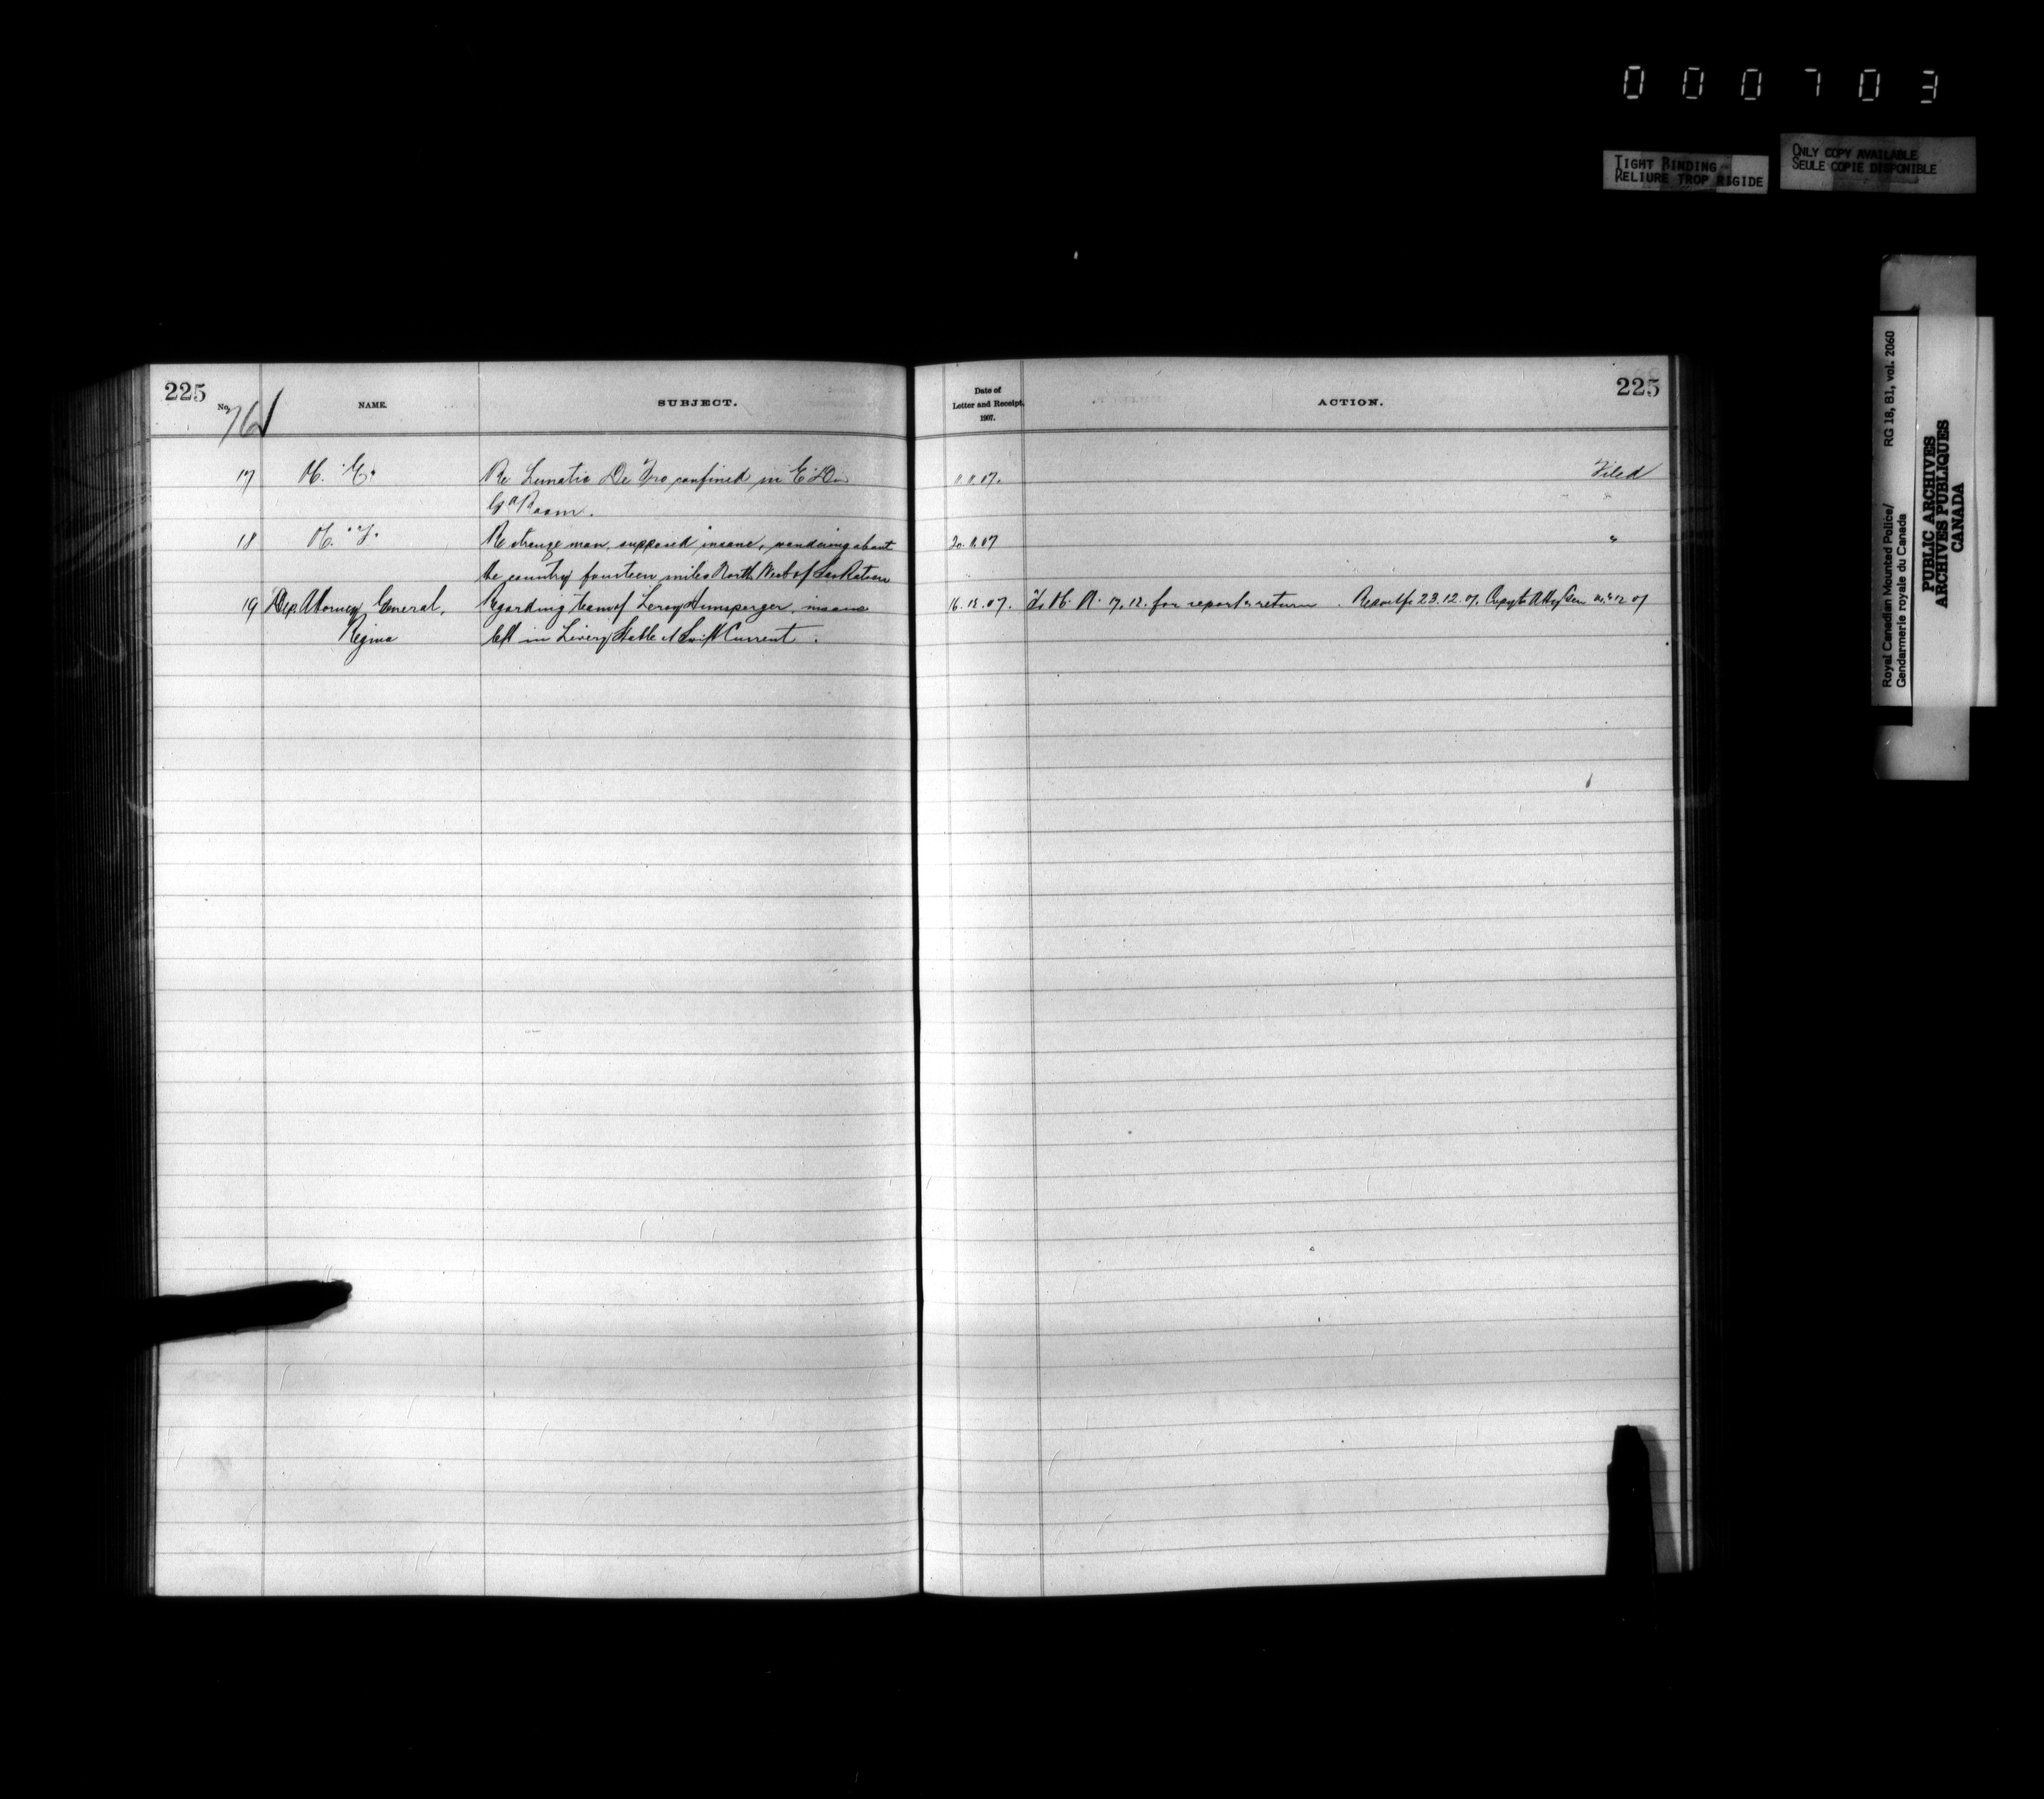 000703
TIGHT BINDING
RELIURE TROP RIGIDE
ONLY COPY AVAILABLE
SEULE COPIE DISPONIBLE
Royal Canadian Mounted Police/ RG 18, B1, vol. 2060
Gendarmerie royale du Canada
PUBLIC ARCHIVES
ARCHIVES PUBLIQUES
CANADA
225
No. 761 NAME. SUBJECT.
Date of
Letter and Receipt,
1907.
ACTION.
225
17 O.C. "E". Re Lunatic De confined in "E" Div 07. Filed
Gd Room.
18 O.C. "F". Re strange man, supposed insane, wandering about 07 "
the country fourteen miles North West of Saskatoon
19 Dep. Attorney General, Regarding team of Leroy Hunsperger, insane 16.12.07. 17.12. for report & return. 23.12.07. Copy to Atty Gen 12 07
Regina left in Livery Stable at Swift Current.